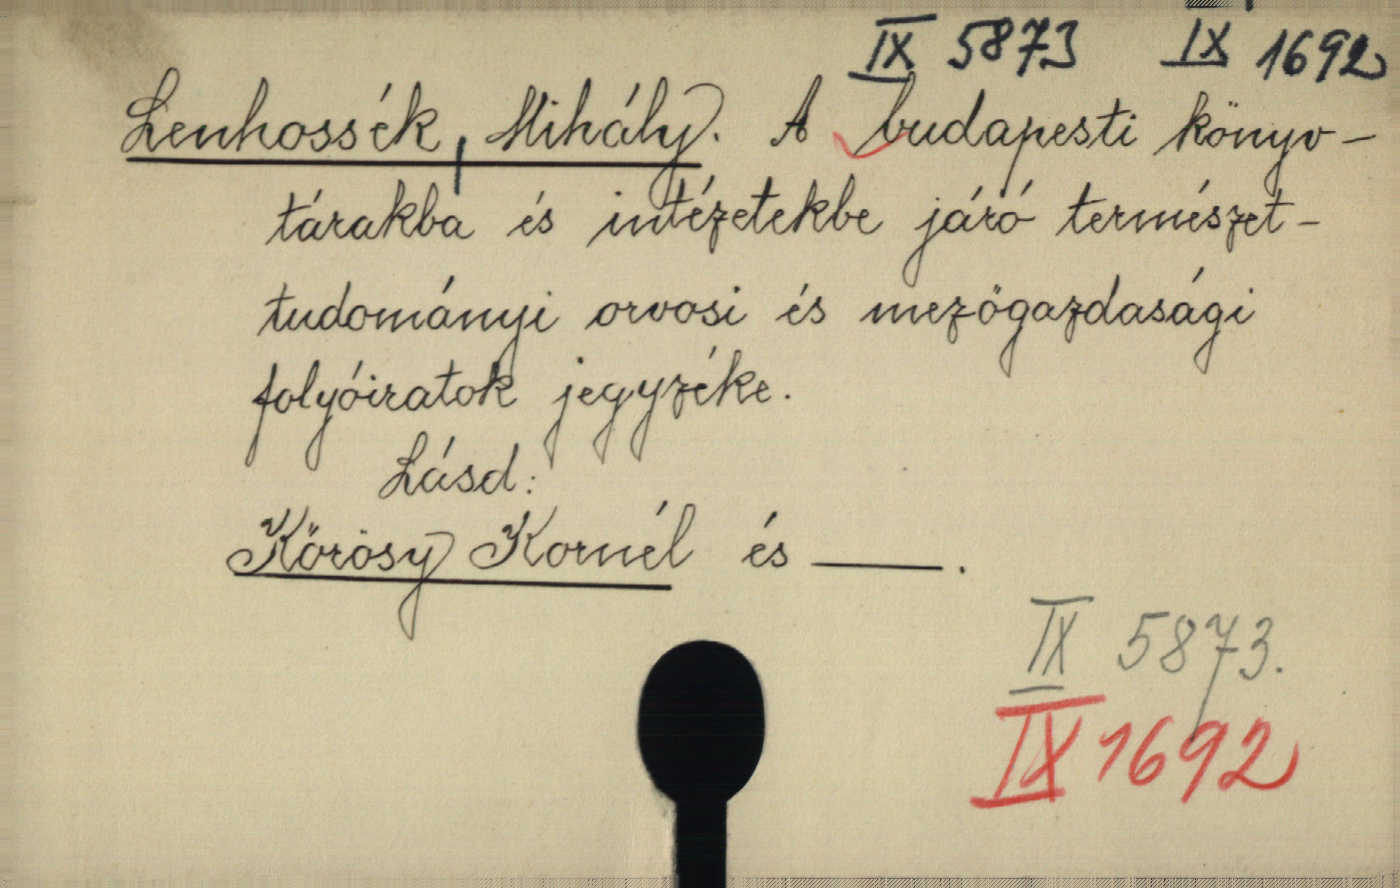 IX 5873 IX 1692
Lenhossék, Mihály. A budapesti könyv-
tárakba és intézetekbe járó természet-
tudományi orvosi és mezögazdasági
folyóiratok jegyzéke.
Lásd:
Körösy Kornél és —.
IX 5873.
IX 1692